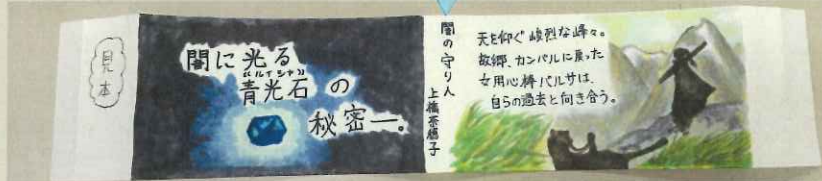 見本
闇に光る
青光石の
ルイシャ
秘密―。
闇の守り人
上橋菜穂子
天を仰ぐ峻烈な峰々。
故郷、カンバルに戻った
女用心棒バルサは、
自らの過去と向き合う。